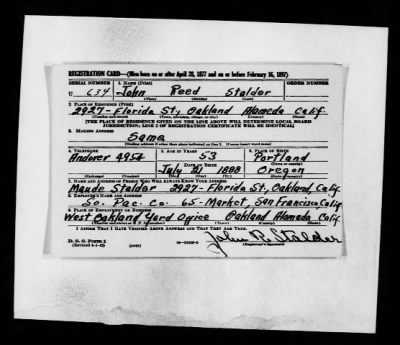 REGISTRATION CARD—(Men born on or after April 28, 1877 and on or before February 16, 1897)
SERIAL NUMBER 1. NAME (Print) ORDER NUMBER
U 634 John Reed Stalder
(First) (Middle) (Last)
2. PLACE OF RESIDENCE (Print)
2927-Florida St, Oakland Alameda Calif.
(Number and street) (Town, township, village, or city) (County) (State)
[THE PLACE OF RESIDENCE GIVEN ON THE LINE ABOVE WILL DETERMINE LOCAL BOARD
JURISDICTION; LINE 2 OF REGISTRATION CERTIFICATE WILL BE IDENTICAL]
3. MAILING ADDRESS
Same
(Mailing address if other than place indicated on line 2. If same insert word same)
4. TELEPHONE 5. AGE IN YEARS 6. PLACE OF BIRTH
Andover 4954 53 Portland
DATE OF BIRTH (Town or county)
July 1888 Oregon
(Exchange) (Number) (Mo.) (Day) (Yr.) (State or country)
7. NAME AND ADDRESS OF PERSON WHO WILL ALWAYS KNOW YOUR ADDRESS
Maude Stalder 2927-Florida St, Oakland, Calif.
8. EMPLOYER'S NAME AND ADDRESS
So. Pac. Co. 65-Market, San Francisco Calif
9. PLACE OF EMPLOYMENT OR BUSINESS
West Oakland Yard Office Oakland Alameda Calif.
(Number and street or R. F. D. number) (Town) (County) (State)
I AFFIRM THAT I HAVE VERIFIED ABOVE ANSWERS AND THAT THEY ARE TRUE.
D. S. S. Form 1
(Revised 4-1-42) (over) John R. Stalder
(Registrant's signature)